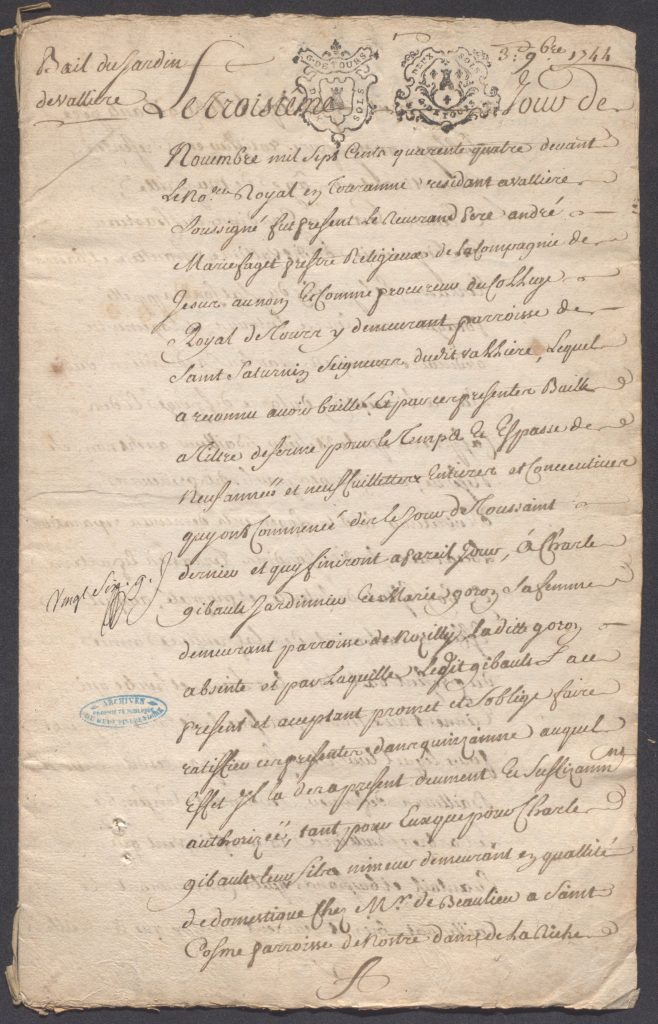 Bail du Jardin
de valliere
3e 9bre 1744
G. DE TOURS
DEUX SOLS
G. DE TOURS
Le troisieme Jour de
Novembre mil Sept Cents quarente quatre devant
Le Nore Royal en Touranne residant a valliere
Soussigné fut present Le Reverand Pere andré
Marie faget prestre Religieux de la Compagnie de
Jesus au nom Et Comme procureur du College
Royal de Tours y demeurant parroisse de
Saint Saturnin Seigneurs dudit valliere, Lequel
a reconnu avoir baillé Et par ces presentes Baille
a titre de ferme pour le Temps Et Espasse de
Neuf années et neuf Cuillettes Entieres et Concecutives
quy ont Commencé des le Jour de Toussaint
dernier et quy finiront a pareil Jour, á Charle
gibault Jardinnier Et Marie goron Sa femme
demeurant parroisse de Rozilly, Laditte goron
absinte et par Laquelle Ledit gibault a ce
present et acceptant promet et s'oblige faire
ratiffier ces presentes dans quinzainne auquel
Effet Jl la des a present deument Et Suffizamnt
authorizeé, tant pour Eux que pour Charle
gibault leur fils mineur demeurant en quallité
de domestique Chez Mr. de Beaulieu a Saint
Cosme parroisse de Nostre dame de La Riche
vingt Six. g. J
ARCHIVES